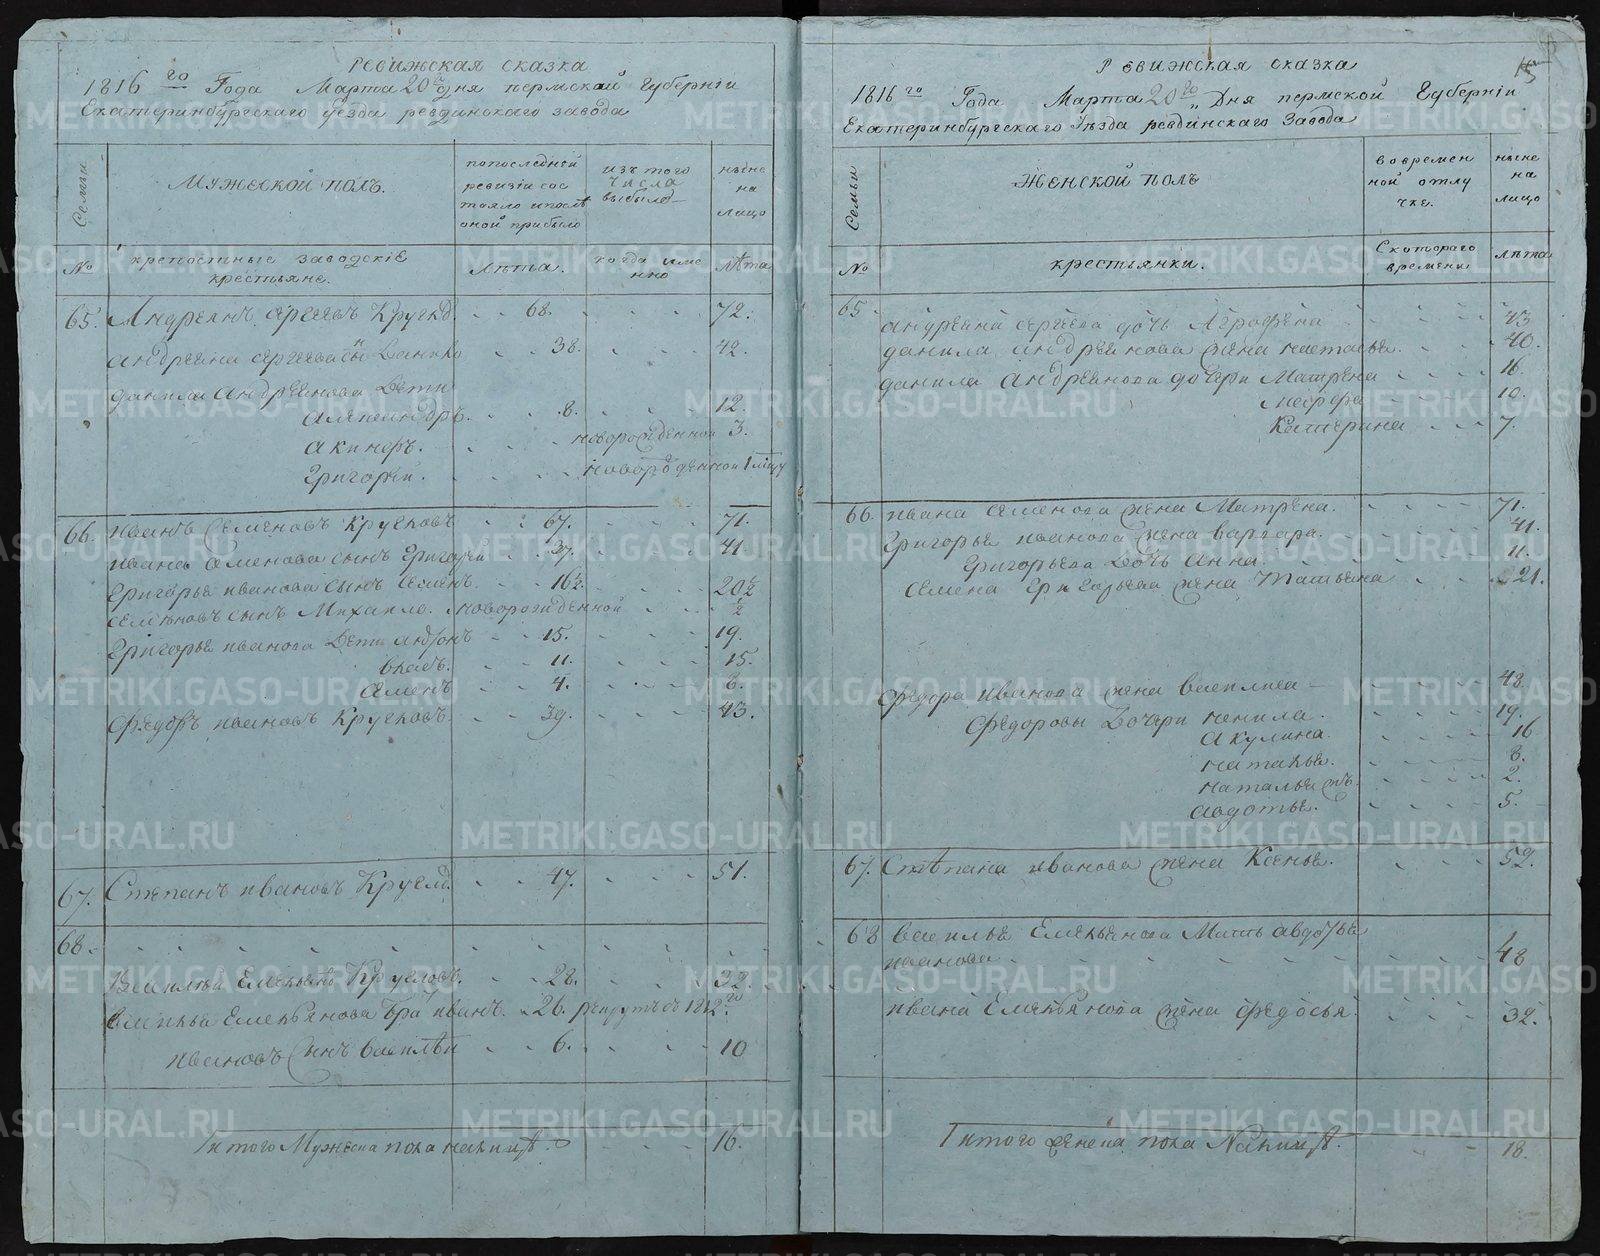 Ревижская сказка
1816 го Года Марта 20 го дня пермской Губерніи
Екатеринбургскаго уезда ревдинскаго завода
Семьи
Мужеской полъ.
попоследней
ревизіи сос
тояло ипослѣ
оной прибыло
изъ того
числа
выбыло
ныне
на
лицо
№
крепостные заводскіе
крестьяне.
лѣта.
когда име
нно
лѣта
65. Андреянъ сергеевъ Кругло 68. 72.
андреяна сергеева сы Данило 38. 42.
данила андреянова Дети
Александръ. 8. 12.
Акинфъ. новорожденной 3.
Григорѣй. новорожденной 1
66. иванъ Семеновъ Кругловъ 67. 71.
ивана семенова сынъ Григорѣй 37. 41
Григорья иванова сынъ Семенъ. 16½. 20½
семеновъ сынъ Михайло. новорожденной ½
Григорья иванова Дети 15. 19.
Власъ. 11. 15.
Семенъ 4. 8.
Федоръ ивановъ Кругловъ. 39. 43.
67. Степанъ ивановъ Кругло. 47. 51.
68.
Василѣй Емельянъ Кругловъ. 28. 32.
василья Емельянова бра иванъ. 26. рекрутъ въ 1812 го
ивановъ Сынъ василѣй 6. 10
Iитого Мужеска пола налицѣ 16.
Ревижская сказка
15
1816 го Года Марта 20 го Дня пермской Губерніи
Екатеринбургскаго Уѣзда ревдинскаго Завода
Семьи
Женской полъ
вовремен
ной отлу
чке.
ныне
на
лицо
№
крестьянки.
Скотораго
времени
лѣта
65. андреяна сергеева дочь Аграфена 43
данила андреянова жена настасья. 40.
данила андреянова дочери Матрена 16.
Марфа 10.
Катерина 7.
66. ивана семенова жена Матрена. 71.
Григорья иванова жена варвара. 41.
Григорьева Дочь анна. 11.
Семена Григорьева жена Татьяна 21.
Федора иванова жена василиса 48
Федоровы Дочери ненила. 19.
акулина. 16
наталья. 8.
наталья жъ. 2.
авдотья. 5.
67. Степана иванова жена Ксенья. 52.
68 василья Емельянова Мать авдотья
иванова 48
ивана Емельянова жена федосья 32.
Iитого женска пола Налицѣ. 18.
METRIKI.GASO-URAL.RU